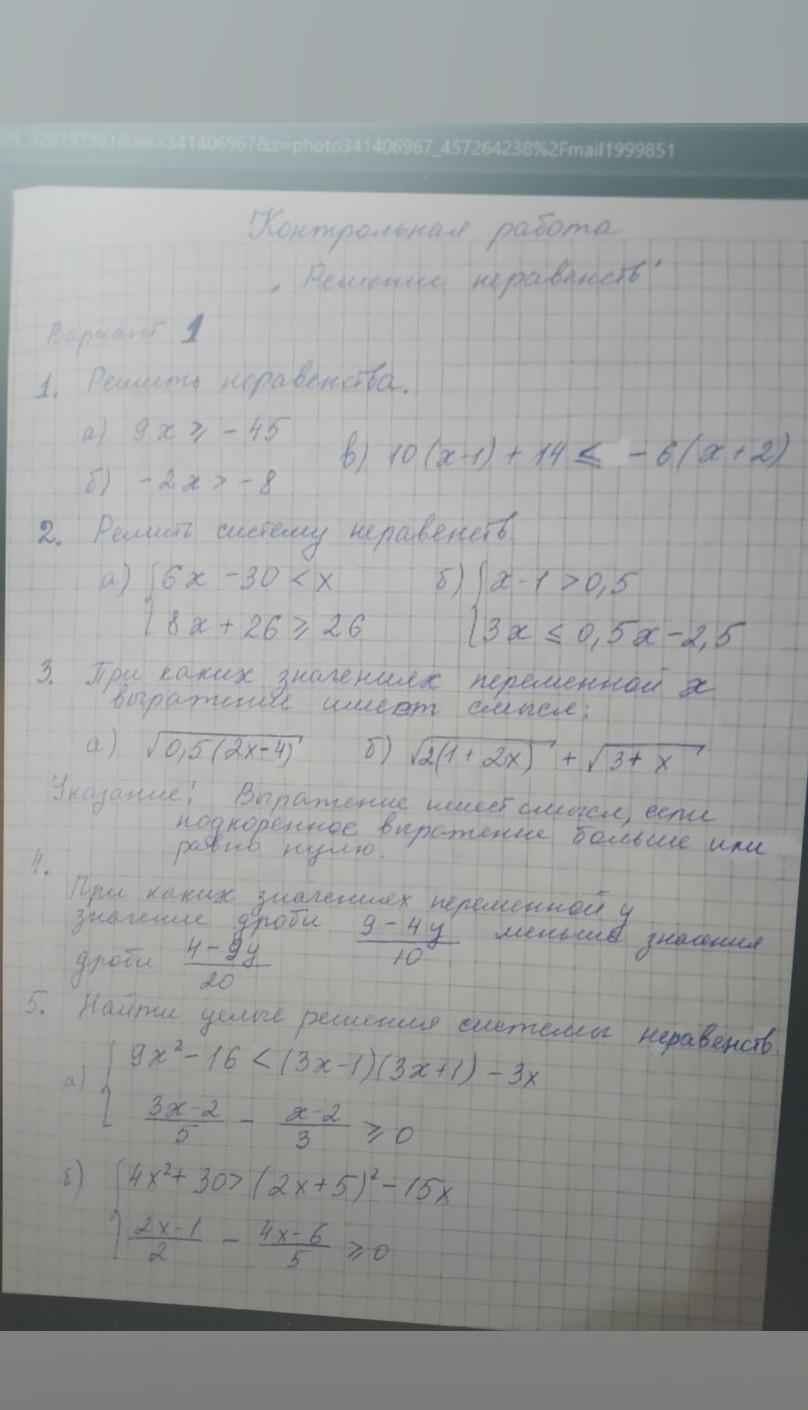 29_328197381&sel=341406967&z=photo341406967_457264238%2Fmail1999851
Контрольная работа
"Решение неравенств"
Вариант 1
1. Решить неравенства.
а) 9x ⩾ -45
в) 10(x-1) + 14 ≤ -6(x+2)
б) -2x > -8
2. Решить систему неравенств
а) { 6x - 30 < x б) { x - 1 > 0,5
8x + 26 ⩾ 26 3x ≤ 0,5x - 2,5
3. При каких значениях переменной x
выражение имеет смысл:
а) √0,5(2x-4) б) √2(1+2x) + √3+x
Указание: Выражение имеет смысл, если
подкоренное выражение больше или
равно нулю.
4.
При каких значениях переменной y
значение дроби (9-4y)/10 меньше значения
дроби (4-9y)/20
5. Найти целые решения системы неравенств.
а) { 9x² - 16 < (3x-1)(3x+1) - 3x
(3x-2)/5 - (x-2)/3 ⩾ 0
б) { 4x² + 30 > (2x+5)² - 15x
(2x-1)/2 - (4x-6)/5 ⩾ 0